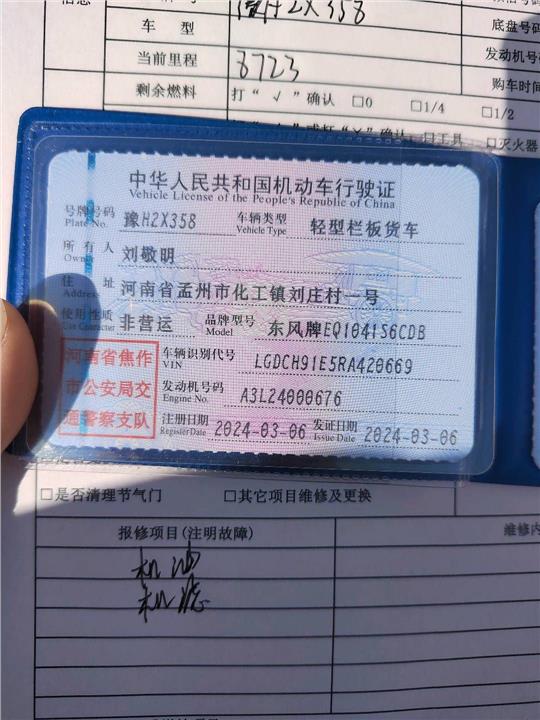 信息
豫H2X358
底盘号码
车 型
发动机号码
当前里程 8723
购车时间
剩余燃料 打“√”确认 □0 □1/4 □1/2
确认 □工具 □灭火器
中华人民共和国机动车行驶证
Vehicle License of the People's Republic of China
号牌号码 豫H2X358 车辆类型 轻型栏板货车
Plate No. Vehicle Type
所有人 刘敬明
Owner
住址 河南省孟州市化工镇刘庄村一号
Address
使用性质 非营运 品牌型号 东风牌EQ1041S6CDB
Use Character Model
河南省焦作市公安局交通警察支队
车辆识别代号 LGDCH91E5RA420669
VIN
发动机号码 A3L24000676
Engine No.
注册日期 2024-03-06 发证日期 2024-03-06
Register Date Issue Date
□是否清理节气门 □其它项目维修及更换
报修项目(注明故障) 维修内
机油
机滤